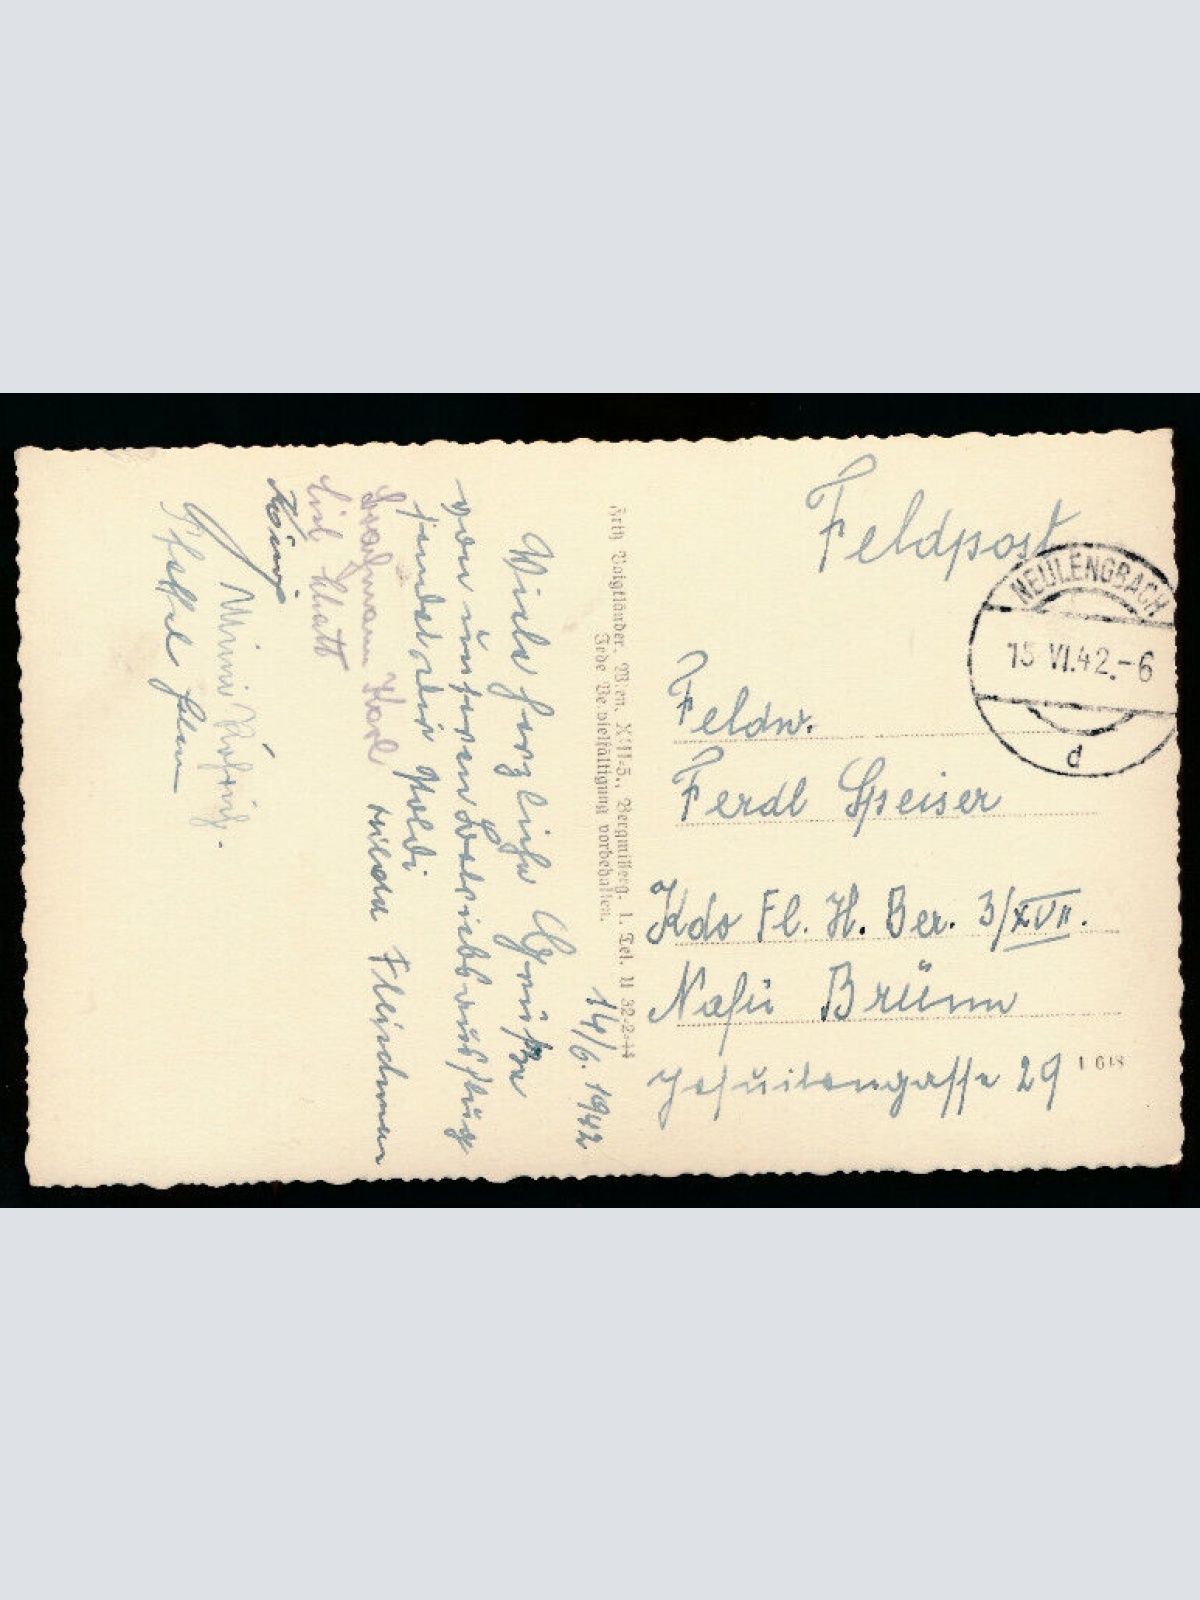 Feldpost
NEULENGBACH
15 VI.42.-6
d
Feldw.
Ferdl Speiser
Kdo Fl. H. Ber. 3/XVII.
Brünn
Jesuitengasse 29
1 618
Fritz Voigtländer, Wien, XIII-5., Bergmillerg. 1. Tel. U 32-2-44
Jede Vervielfältigung vorbehalten.
14/6. 1942
Viele herzliche Grüße
von unserem Betriebsausflug
sendet dir Poldi
Hilda Fleischman
Karl
König
Mimi